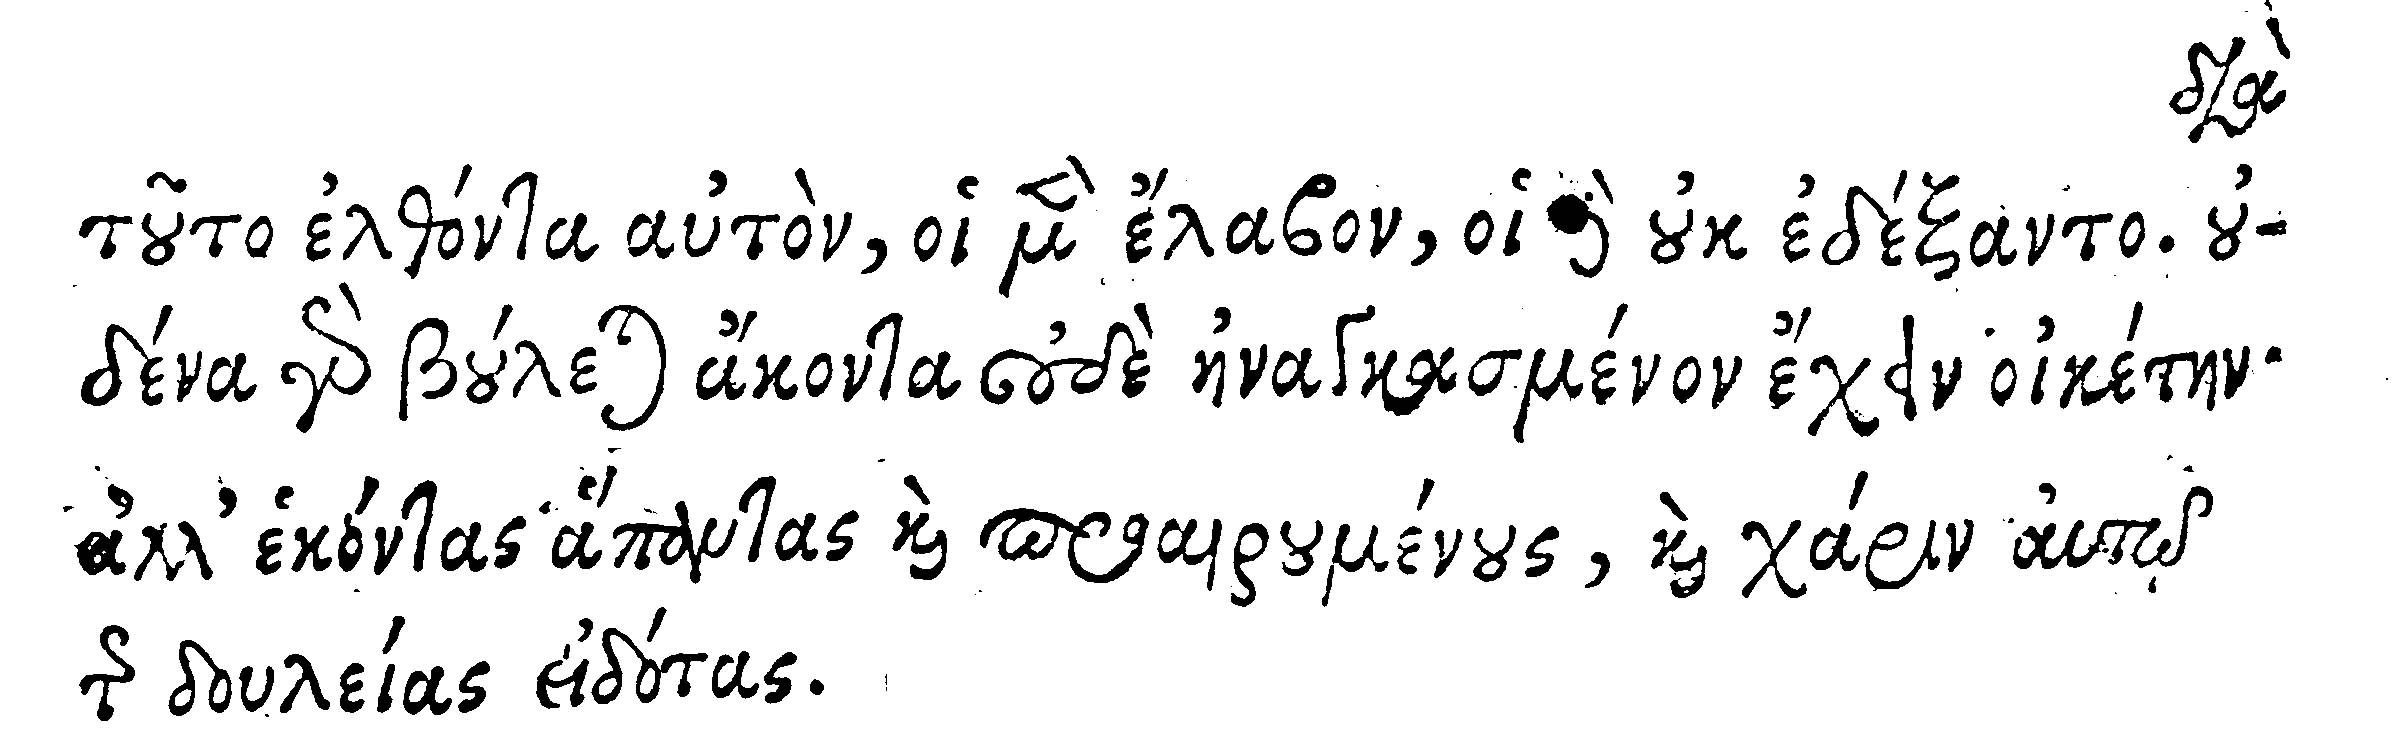 διὰ
τοῦτο ἐλθόντα αὐτὸν, οἱ μὲν ἔλαβον, οἱ δὲ οὐκ ἐδέξαντο. οὐ-
δένα γὰρ βούλεται ἄκοντα οὐδὲ ἠναγκασμένον ἔχειν οἰκέτην·
ἀλλ’ ἑκόντας ἅπαντας καὶ προαιρουμένους, καὶ χάριν αὐτῷ
τῆς δουλείας εἰδότας.